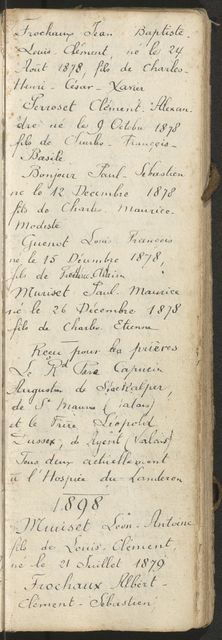 Frochaux Jean Baptiste
Louis Clément né le 24
Août 1878, fils de Charles
Henri-César-Xavier
Perroset Clément Alexan-
dre né le 9 Octobre 1878
fils de Charles-François-
Basile
Bonjour Paul Sébastien
né le 12 Décembre 1878
fils de Charles Maurice
Modeste
Guenot Louis François
né le 15 Décembre 1878,
fils de
Muriset Paul Maurice
né le 26 Décembre 1878
fils de Charles Etienne
Reçu pour les prières
Le Rd Père Capucin
Augustin de
de St Maurice (Valais)
et le Frère Léopold
de (Valais)
Tous deux actuellement
à l'Hospice du Landeron
1898
Muriset Léon-Antoine
fils de Louis-Clément,
né le 21 Juillet 1879
Frochaux Albert-
Clément-Sébastien